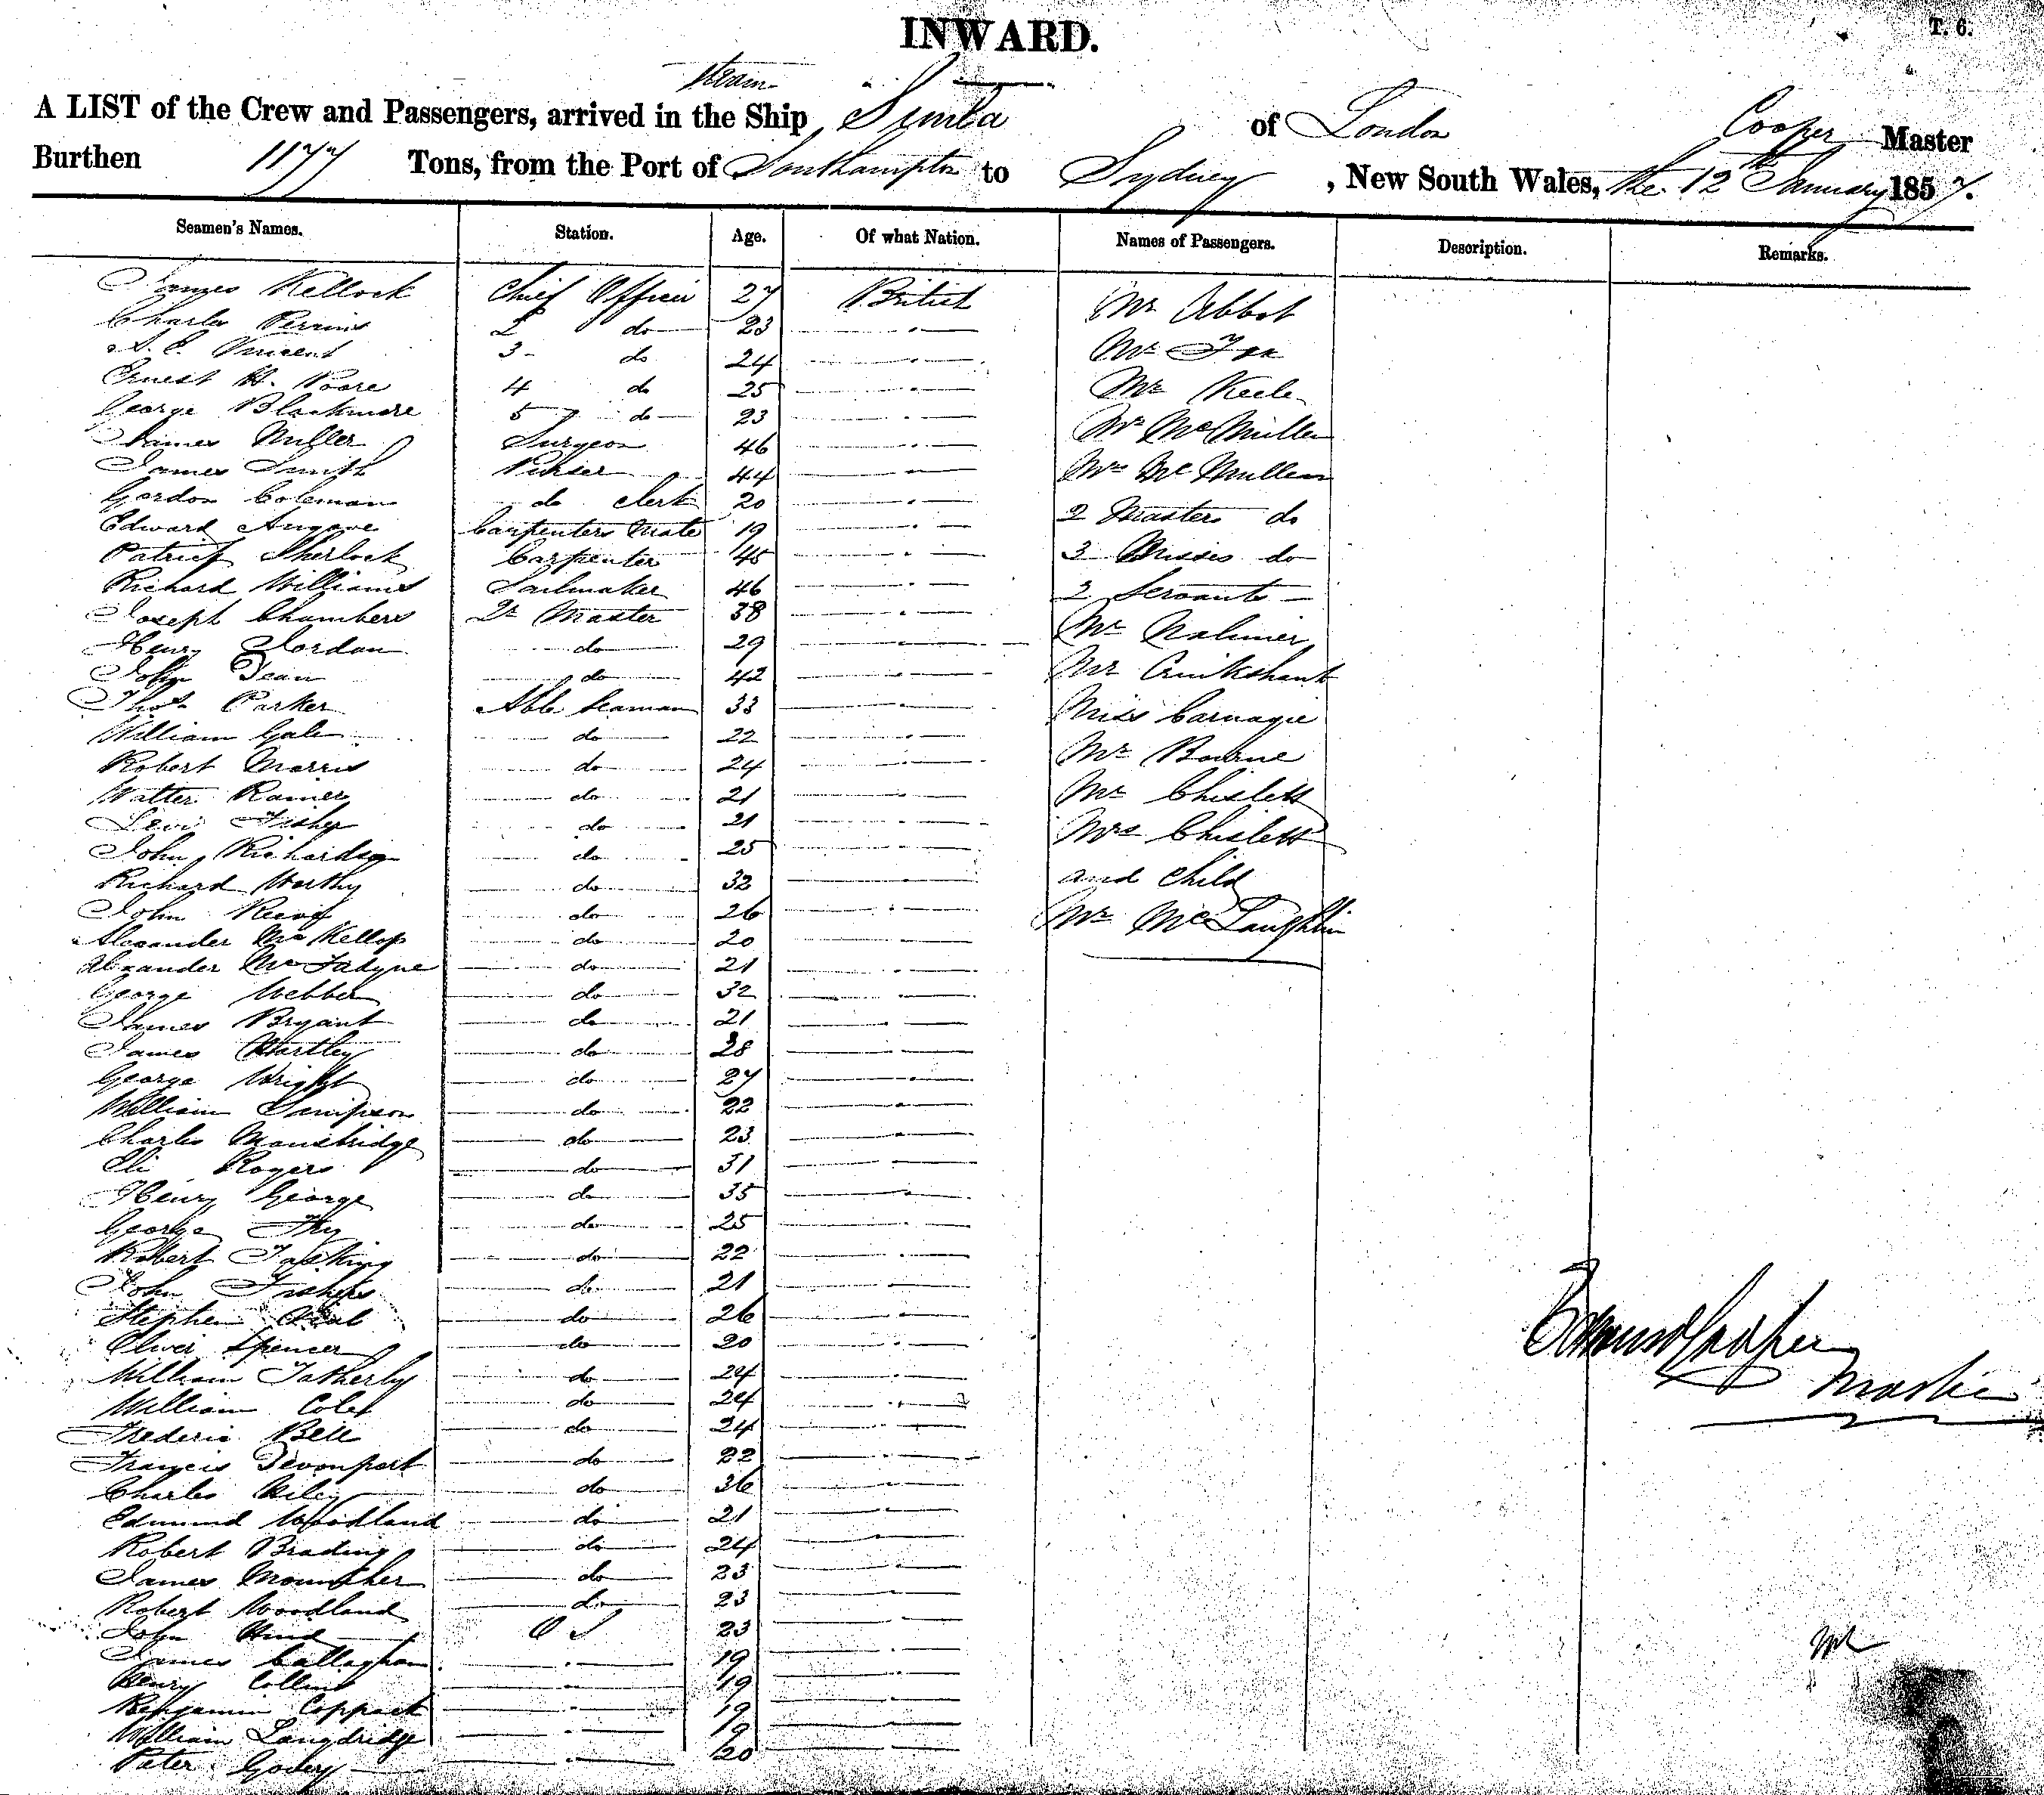 INWARD.
T. 6.
Steam
A LIST of the Crew and Passengers, arrived in the Ship Simla of London Cooper Master
Burthen 1177 Tons, from the Port of Southampton to Sydney, New South Wales, the 12th January 1857.
Seamen's Names. Station. Age. Of what Nation. Names of Passengers. Description. Remarks.
James Kellock Chief Officer 27 British Mr Abbot
Charles Perrins 2 do 23 Mr Fox
A. C. Vincent 3 do 24
Ernest H. Poore 4 do 25 Mr Keele
George Blackmore 5 do 23 Mr McMullen
James Miller Surgeon 46
James Smith Purser 44 Mrs McMullen
Gordon Coleman do Clerk 20 2 Masters do
Edward Angove Carpenters Mate 19
Patrick Sherlock Carpenter 45 3 Misses do
Richard Williams Sailmaker 46 2 Servants
Joseph Chambers Qr Master 38 Mr
Henry Jordan do 29
John Dean do 42 Mr Cruikshank
Thos Parker Able Seaman 33 Miss Carnagie
William Gale do 22
Robert Morris do 24 Mr Bourne
Walter Rainer do 21 Mr Chislett
Levi Fisher do 21 Mrs Chislett
John Richardson do 25
Richard Worthy do 32 and Child
John do 26 Mr McLaughlin
Alexander McKellop do 20
Alexander McFadyne do 21
George Webber do 32
James Bryant do 21
James Hartley do 28
George Wright do 27
William Sampson do 22
Charles Mansbridge do 23
Eli Rogers do 31
Henry George do 35
George do 25
Robert do 22
John do 21
Stephen do 26
Oliver Spencer do 20
William Fatherly do 24
William Coles do 24
Frederic Bell do 24
Francis Devonport do 22
Charles Riley do 36
Edmund Woodland do 21
Robert Brading do 24
James do 23
Robert Woodland do 23
John Hind O S 23
James Callaghan 19
Henry Collins 19
Benjamin Coppack 19
William Langdridge 19
Peter 20
Edmund Cooper
Master